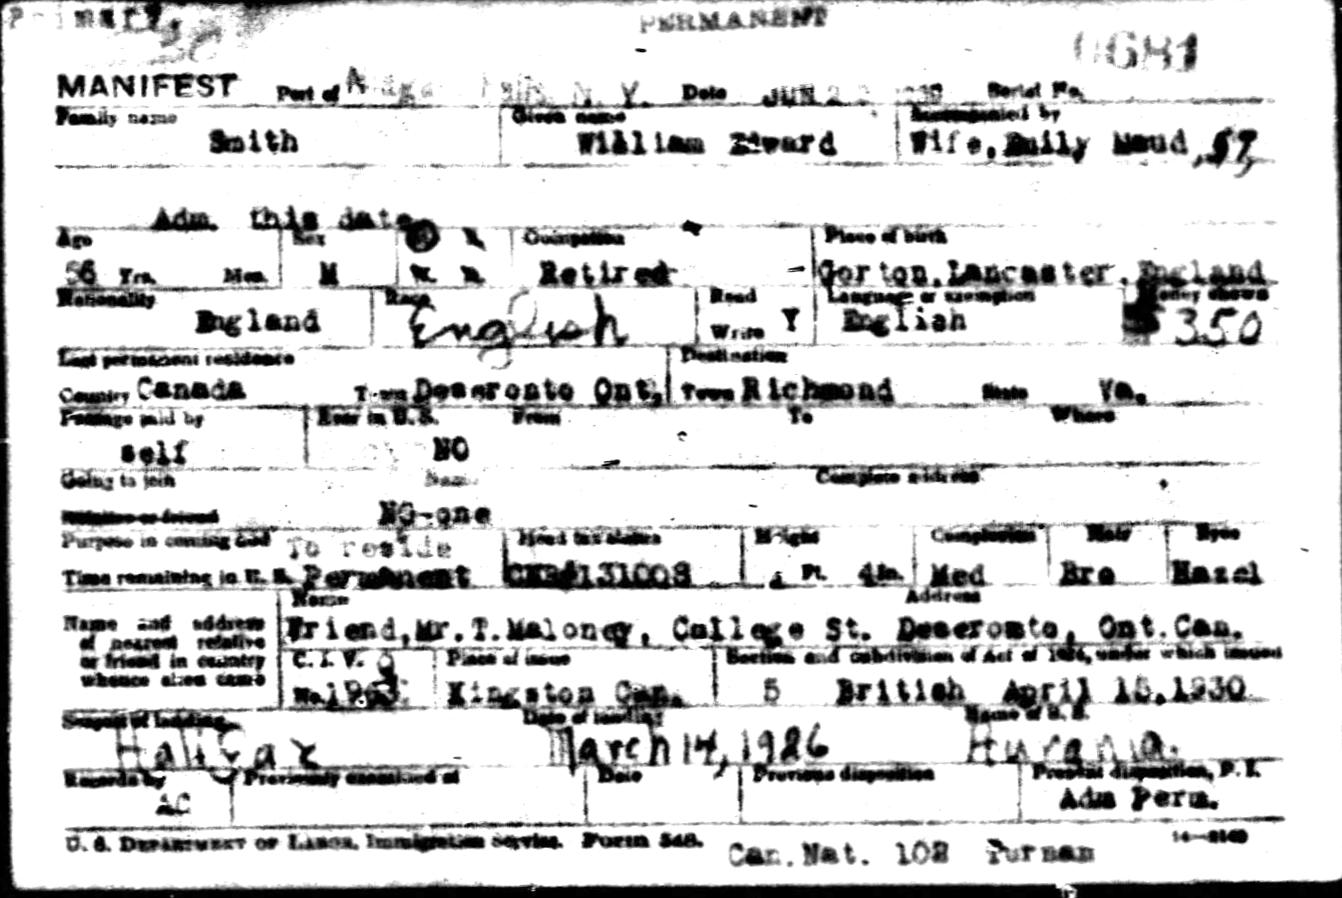 Primary
PERMANENT
0681
MANIFEST Port of Niagara Falls, N. Y. Date JUN 2 Serial No.
Family name Given name Accompanied by
Smith William Edward Wife, Emily Maud, 57,
Adm. this date
Age Sex Occupation Place of birth
56 Yrs. Mos. M Retired Gorton, Lancaster, England
Nationality Race Read Language or exemption Money shown
England English Write Y English $ 350
Last permanent residence Destination
Country Canada Town Deseronto Ont, Town Richmond State Va.
Passage paid by Ever in U.S. From To Where
self NO
Going to join Name Complete address
Relative or friend NO-one
Purpose in coming and To reside Head tax status Height Complexion Hair Eyes
Time remaining in U. S. Permanent Ft. In. Med Bro Hazel
Name Address
Name and address of nearest relative or friend in country whence alien came
Friend, Mr. T. Maloney, College St. Deseronto, Ont. Can.
C. I. V. Place of issue Section and subdivision of Act of 1924, under which issued
No. Kingston Can. 5 British April 1930
Seaport of landing Date of landing Name of S. S.
Halifax March 14, 1926
Records by Previously examined at Date Previous disposition Present disposition, P. I.
AC Adm Perm.
U. S. DEPARTMENT OF LABOR, Immigration Service. Form 548. 14-2140
Can. Nat. 102 Furman